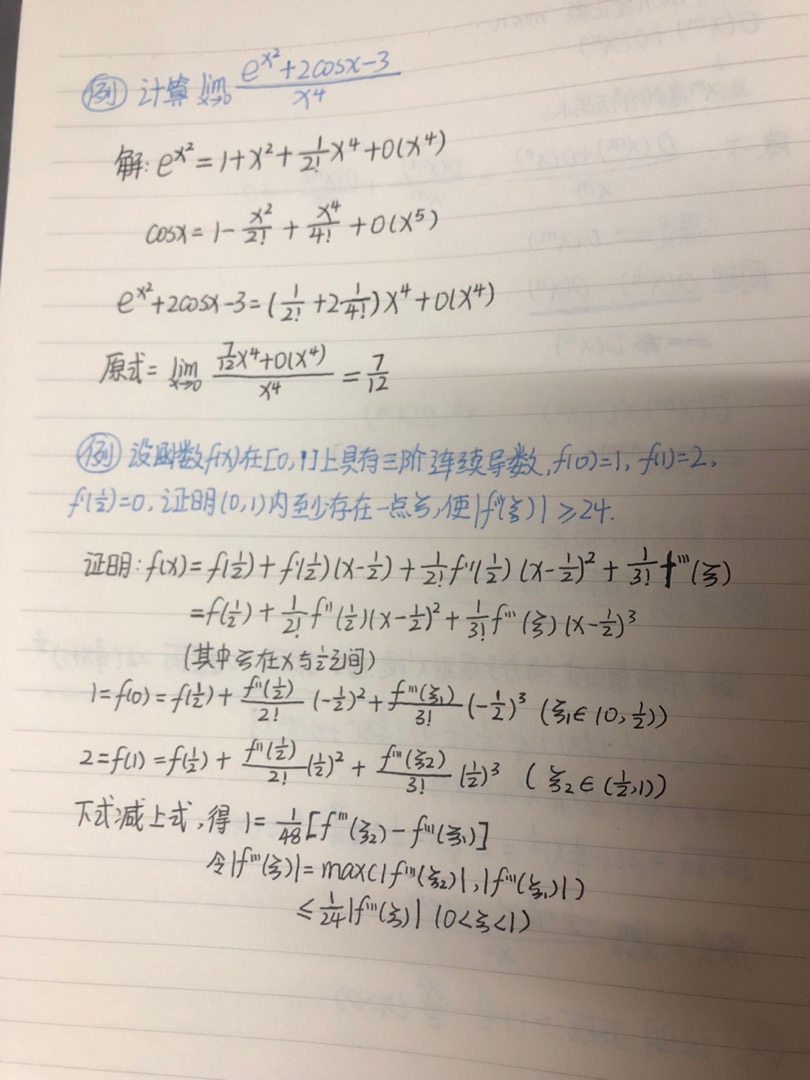 例 计算 lim x→0 (e^(x²)+2cosx-3)/x⁴
解: e^(x²)=1+x²+1/2! x⁴+o(x⁴)
cosx=1-x²/2!+x⁴/4!+o(x⁵)
e^(x²)+2cosx-3=(1/2!+2 1/4!)x⁴+o(x⁴)
原式=lim x→0 (7/12 x⁴+o(x⁴))/x⁴=7/12
例 设函数f(x)在[0,1]上具有三阶连续导数,f(0)=1, f(1)=2,
f'(1/2)=0,证明(0,1)内至少存在一点ξ,使|f'''(ξ)|≥24.
证明: f(x)=f(1/2)+f'(1/2)(x-1/2)+1/2! f''(1/2)(x-1/2)²+1/3! f'''(ξ)
=f(1/2)+1/2! f''(1/2)(x-1/2)²+1/3! f'''(ξ)(x-1/2)³
(其中ξ在x与1/2之间)
1=f(0)=f(1/2)+f''(1/2)/2! (-1/2)²+f'''(ξ₁)/3! (-1/2)³ (ξ₁∈(0,1/2))
2=f(1)=f(1/2)+f''(1/2)/2! (1/2)²+f'''(ξ₂)/3! (1/2)³ (ξ₂∈(1/2,1))
下式减上式,得 1=1/48[f'''(ξ₂)-f'''(ξ₁)]
令|f'''(ξ)|=max(|f'''(ξ₂)|,|f'''(ξ₁)|)
≤1/24|f'''(ξ)| (0<ξ<1)